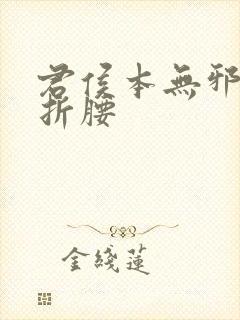 君侯本無邪
折腰
金綫蓮